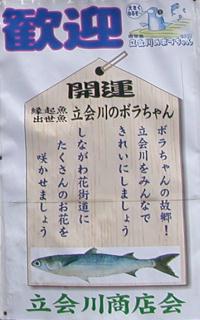 歓迎
立会川のボラちゃん
開運
縁起魚
出世魚
立会川のボラちゃん
ボラちゃんの故郷!
立会川をみんなで
きれいにしましょう
しながわ花街道に
たくさんのお花を
咲かせましょう
立会川商店会